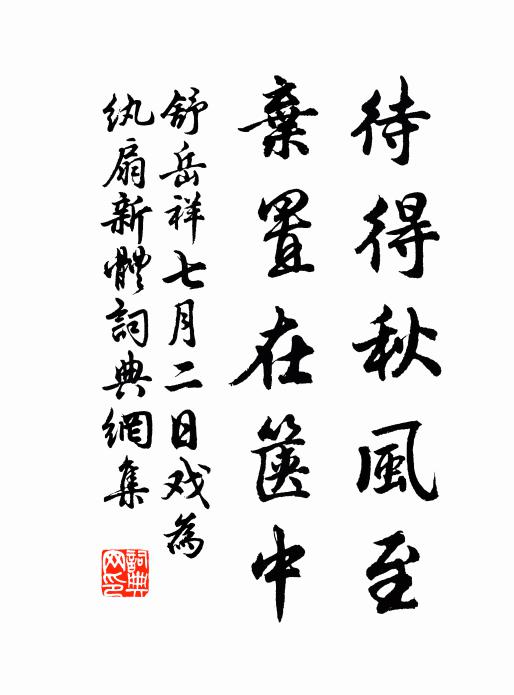 待得秋風至
棄置在篋中
舒岳祥七月二日戏為
紈扇新體詞典網集
詞典
网印